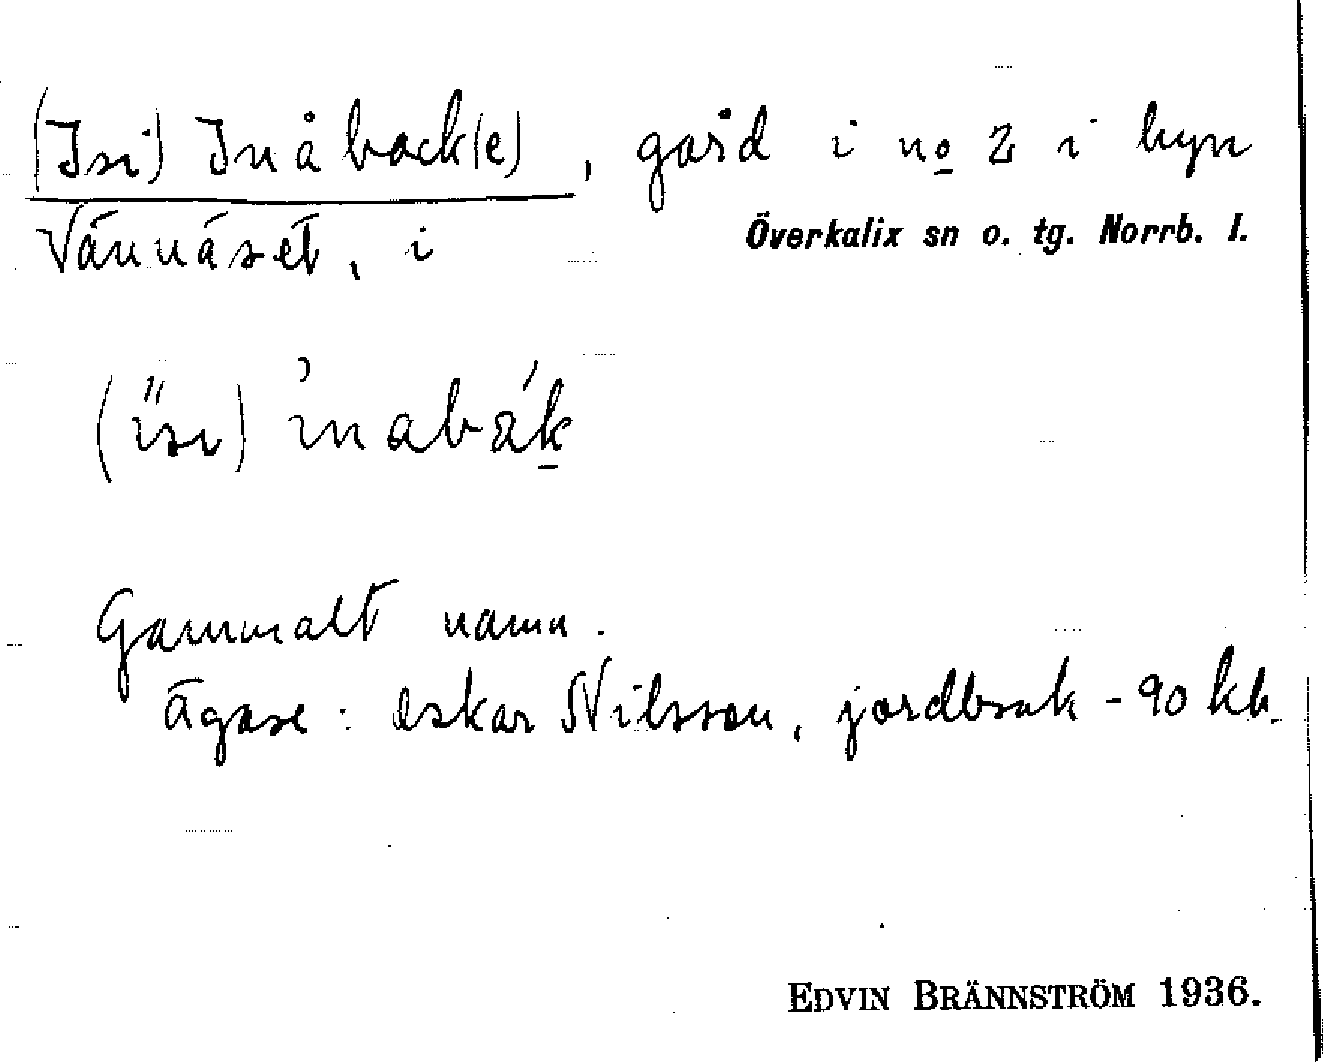 (Isi) Inåback(e), gård i no 2 i byn
Vännäset, i Överkalix sn o. tg. Norrb. l.
(ı̋sı) ınabák̲
Gammalt namn.
Ägare: Oskar Nilsson, jordbruk - 90 kh.
EDVIN BRÄNNSTRÖM 1936.